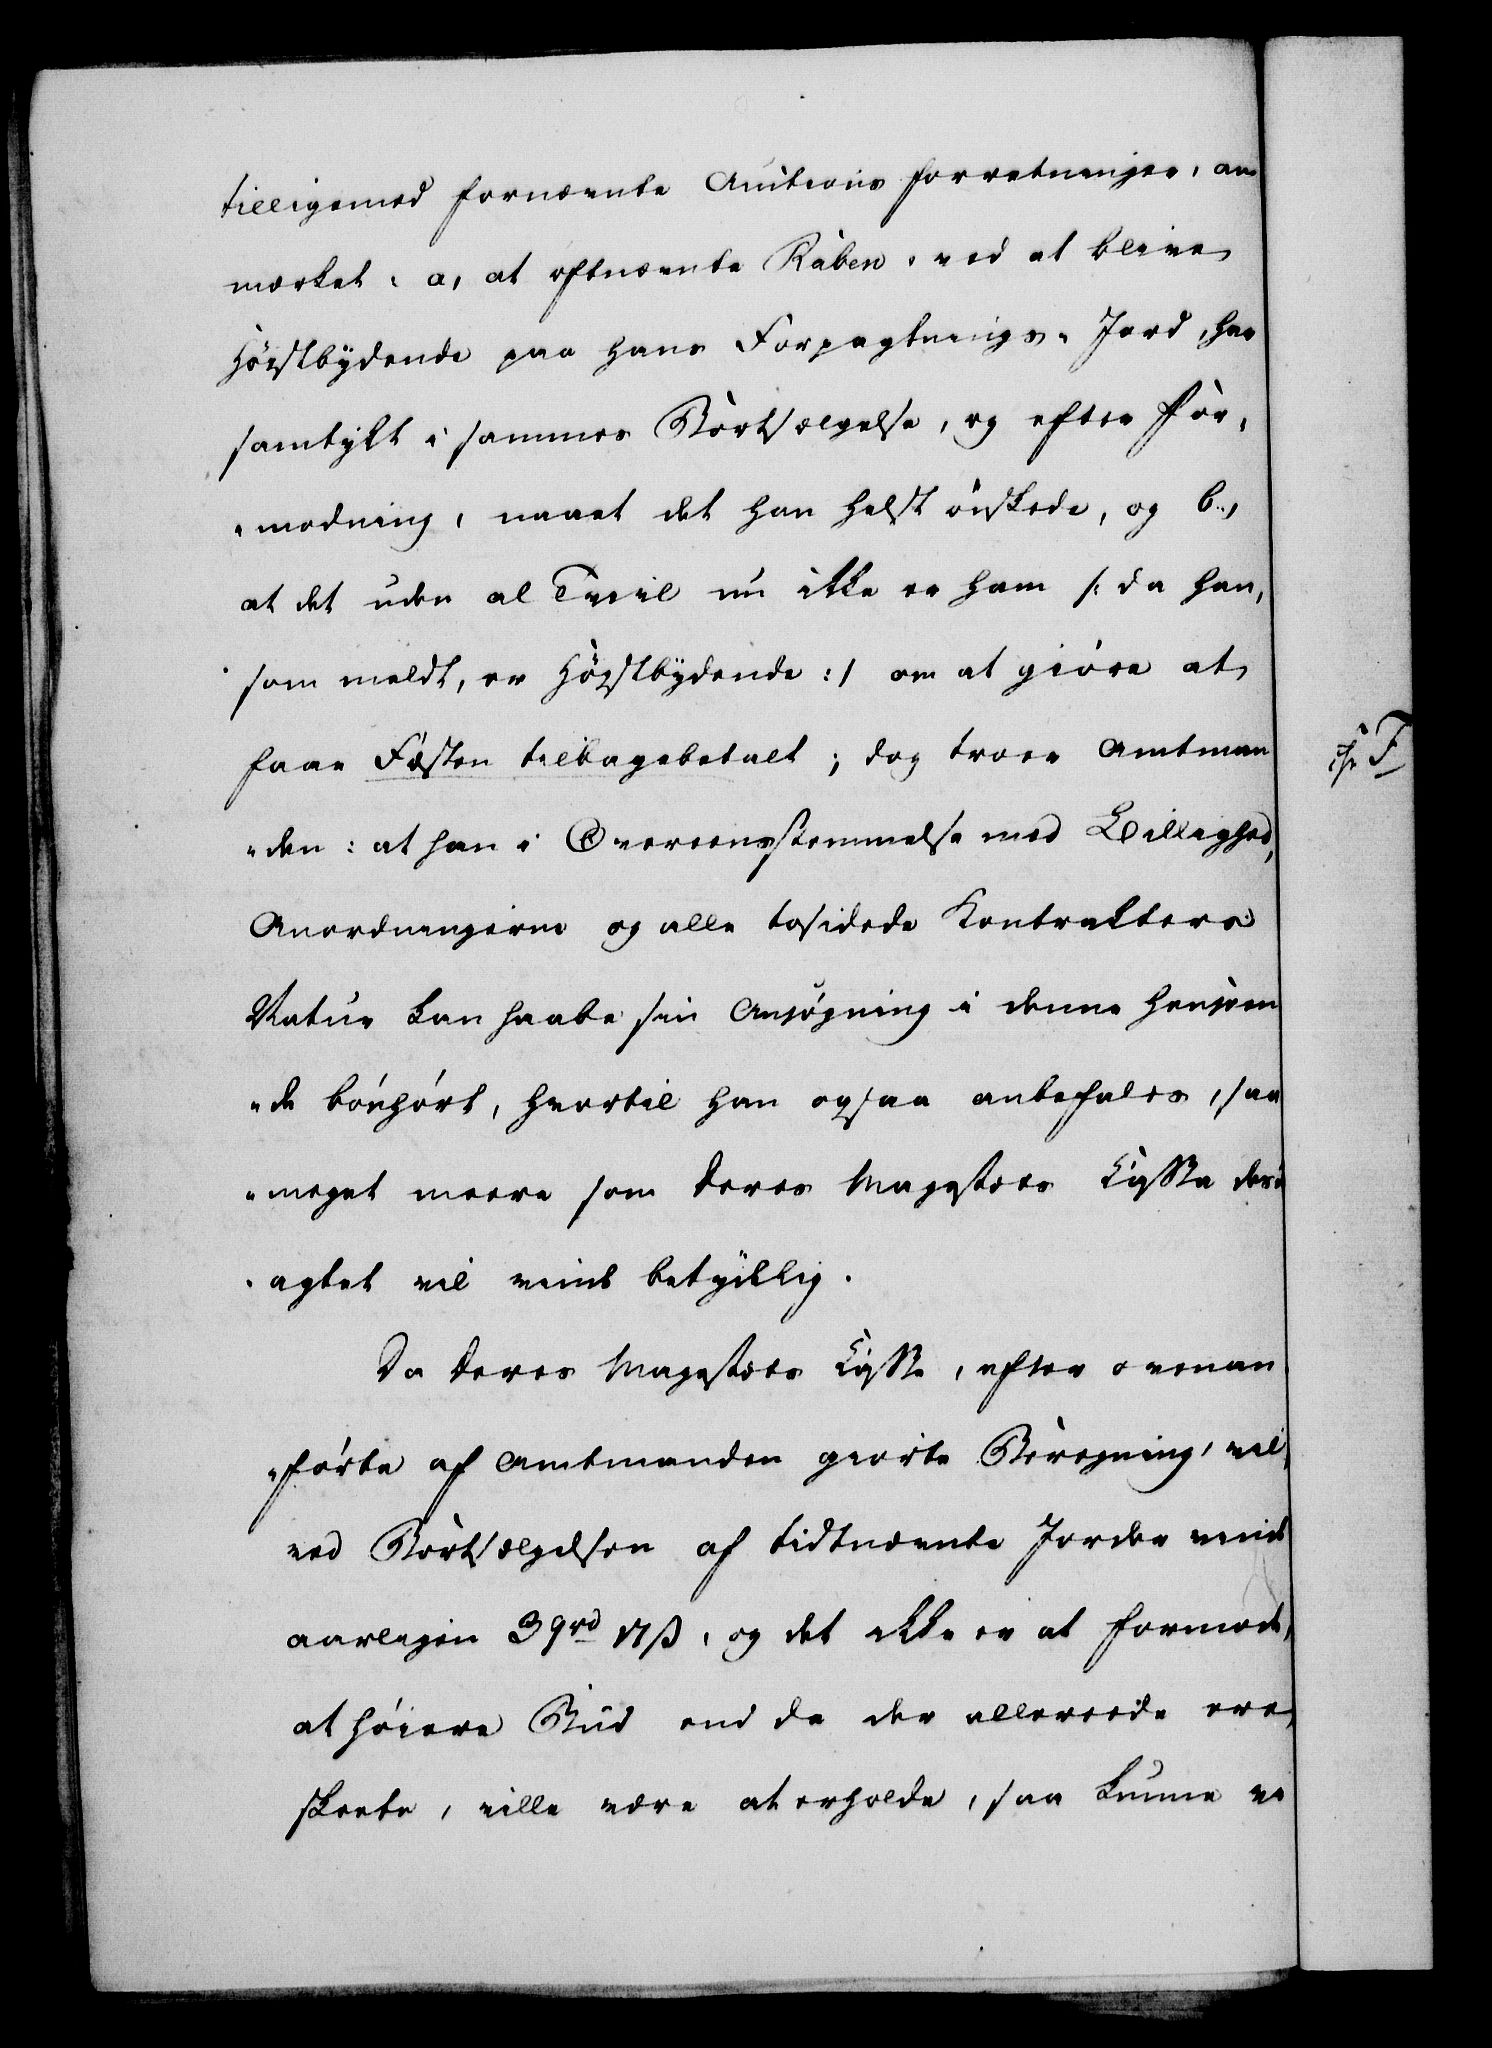 tilligemed fornævnte Auctions forretninger, an
mærket: a, at oftnævnte Raben, ved at blive
Høistbydende paa hans Forpagtnings-Jord, har
samtykt i sammes Bortsælgelse, og efter for-
„modning, naaet det han helst ønskede, og b.,
at det uden al Tvivl nu ikke er ham /: da han,
som meldt, er Høistbydende :/ om at giøre at
faae Fæsten tilbagebetalt; dog troer Amtman
„den: at han i Overeensstemmelse med Billighed,
Anordningerne og alle tosidede Kontrakters
Natur kan haabe sin Ansøgning i denne henseen
„de bønhørt, hvortil han ogsaa anbefales, saa
„meget meere som Deres Majestæts Kasse deri
agtet vil vinde betydelig.
Da Deres Majestæts Kasse, efter ovenan
„førte af Amtmanden giorte Beregning, vil,
ved Bortsælgelsen af tidtnævnte Jorder vinde
aarligen 39rd 17ß, og det ikke er at formode,
at høiere Bud end de der allereede ere
skeete, ville være at erholde, saa kunne vi